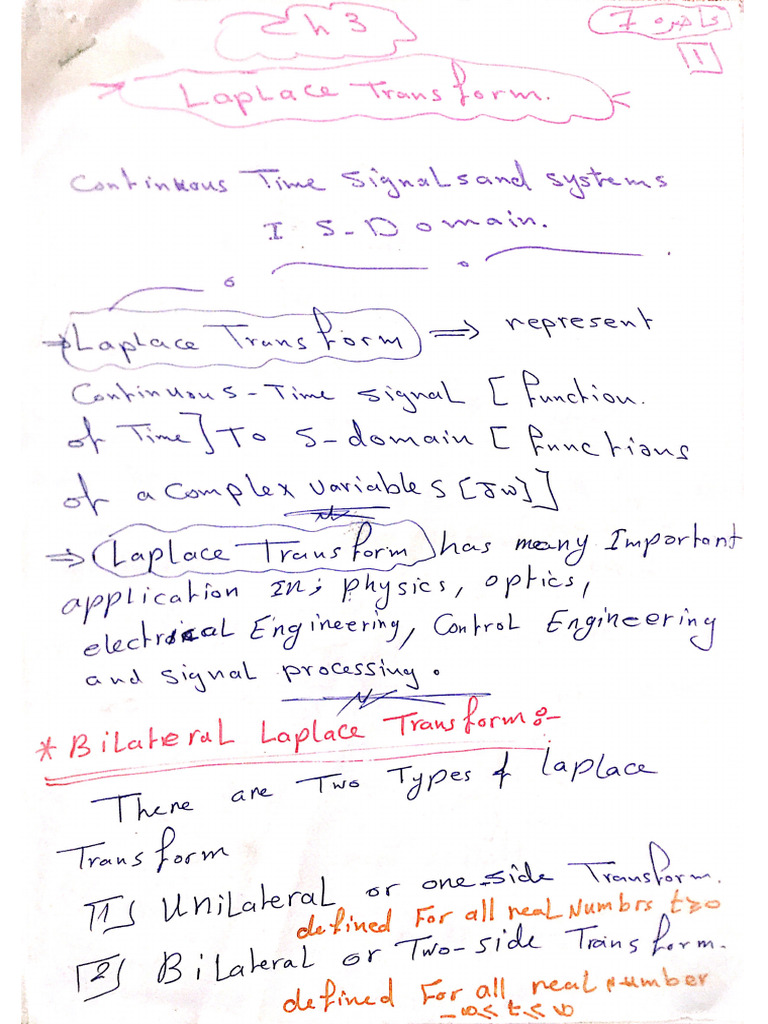 Ch 3
محاضره 7
1
Laplace Transform.
Continuous Time Signals and systems
I S-Domain.
⇒ Laplace Transform ⇒ represent
Continuous-Time Signal [function.
of Time] To S-domain [functions
of a complex variable S [Jw]]
⇒ Laplace Transform has many Important
application In; physics, optics,
electrical Engineering, Control Engineering
and signal processing.
* Bilateral Laplace Transform:-
There are Two Types of laplace
Transform
[1] Unilateral or one-side Transform.
defined For all real Numbrs t≥0
[2] Bilateral or Two-side Transform.
defined For all real number
-∞≤t≤∞